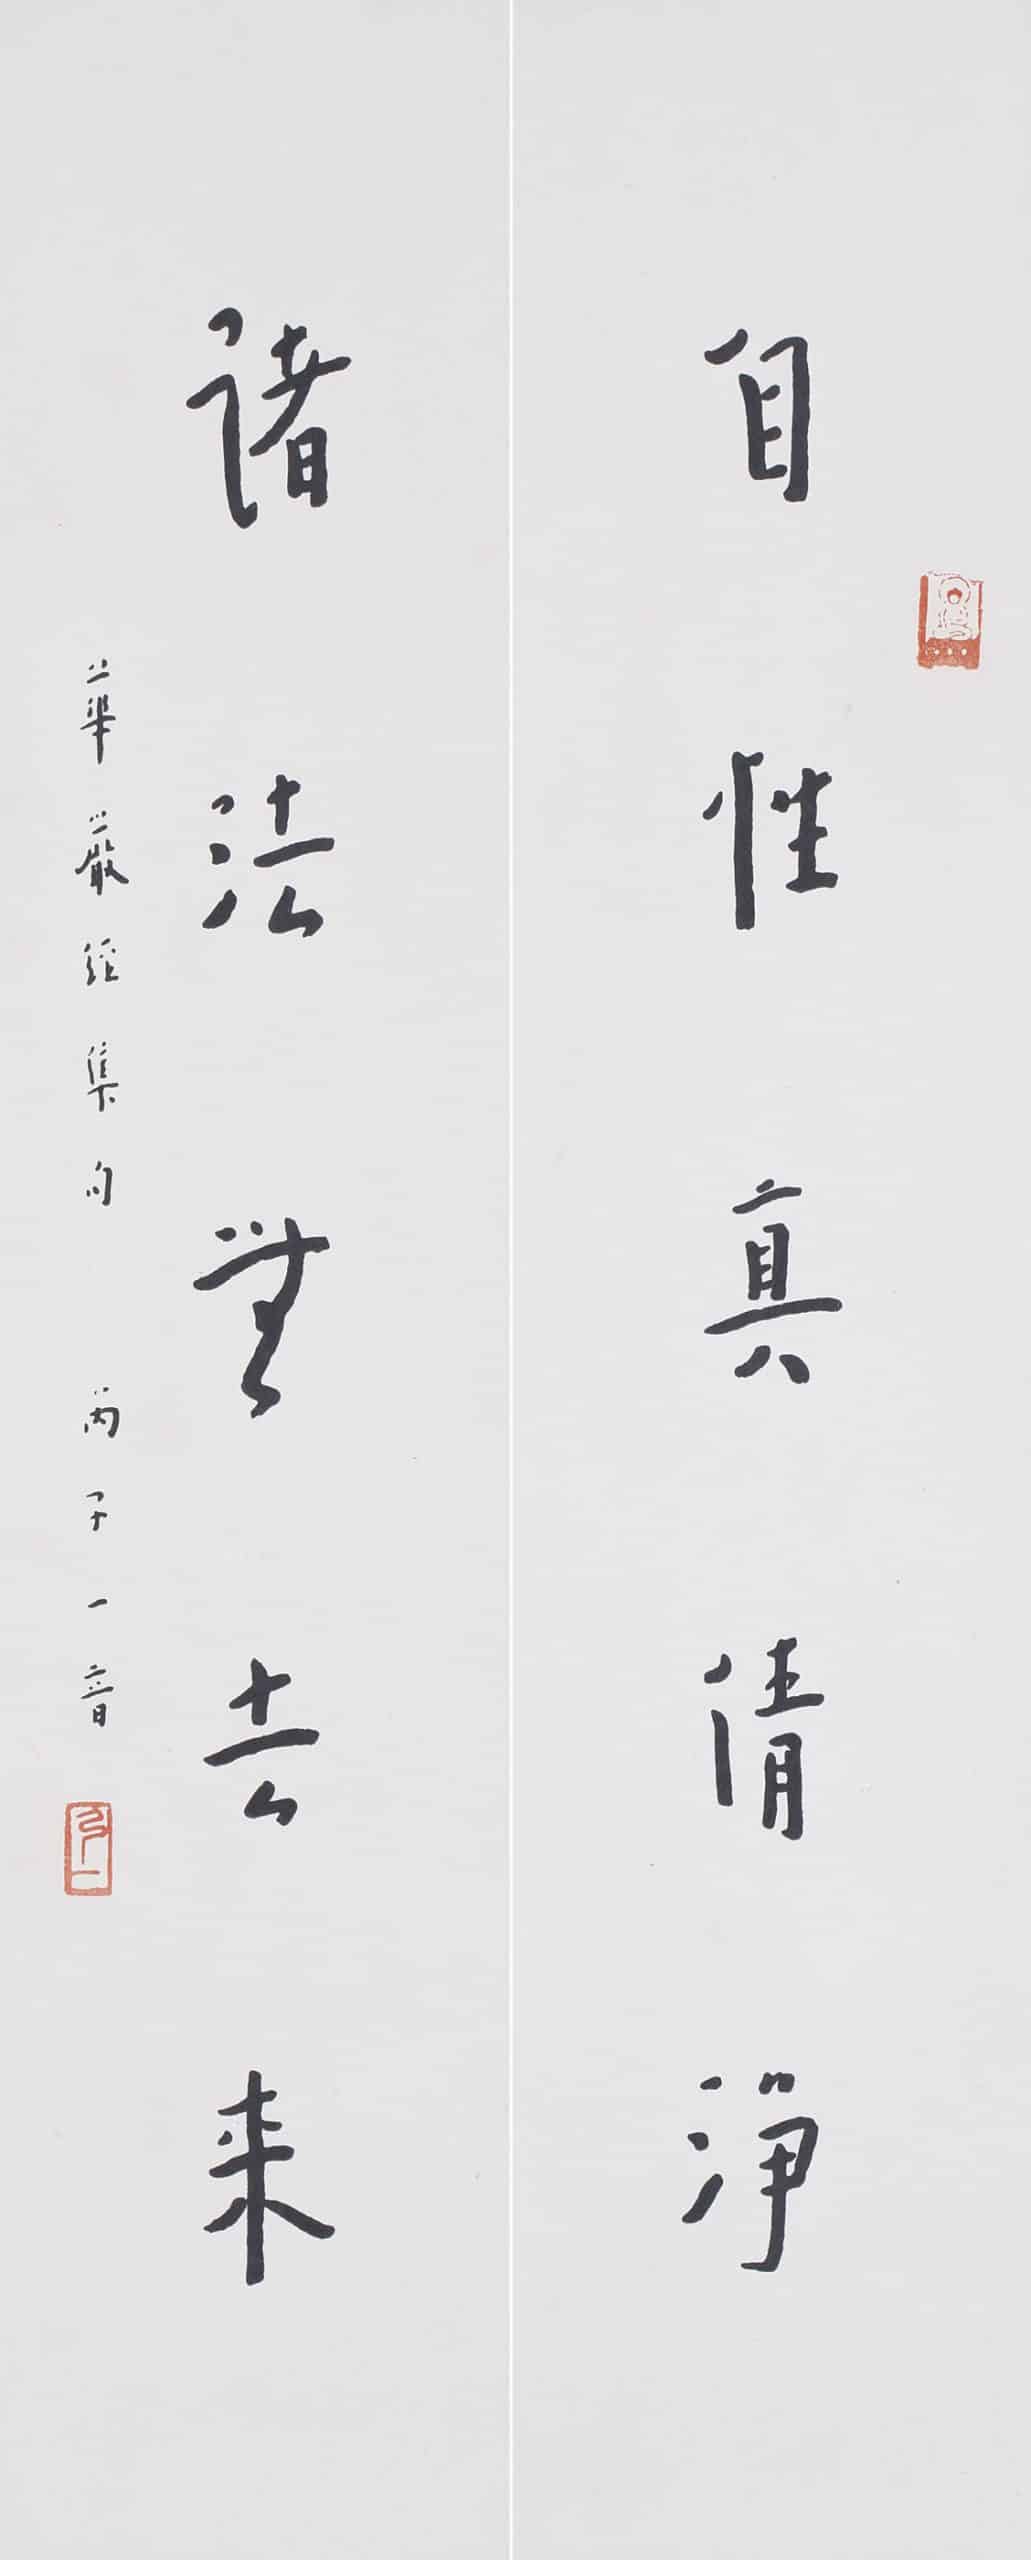 自性真清淨
諸法無去來
華嚴經集句 丙子一音
弘一